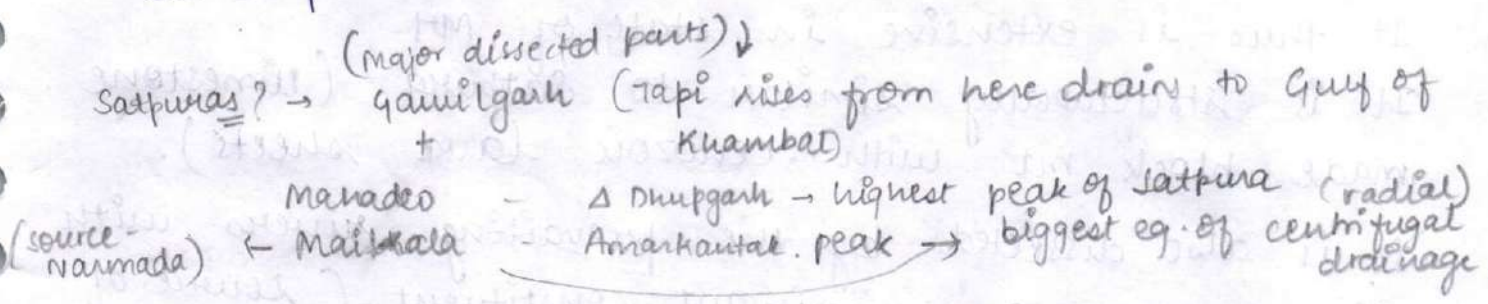 (major dissected parts) ↓
Satpuras? → Gawilgarh (Tapi rises from here drains to Gulf of
+ Khambat)
Mahadeo - Δ Dhupgarh → highest peak of Satpura (radial)
(source - Narmada) ← Maikala Amarkantak. peak → biggest eg. of centrifugal drainage